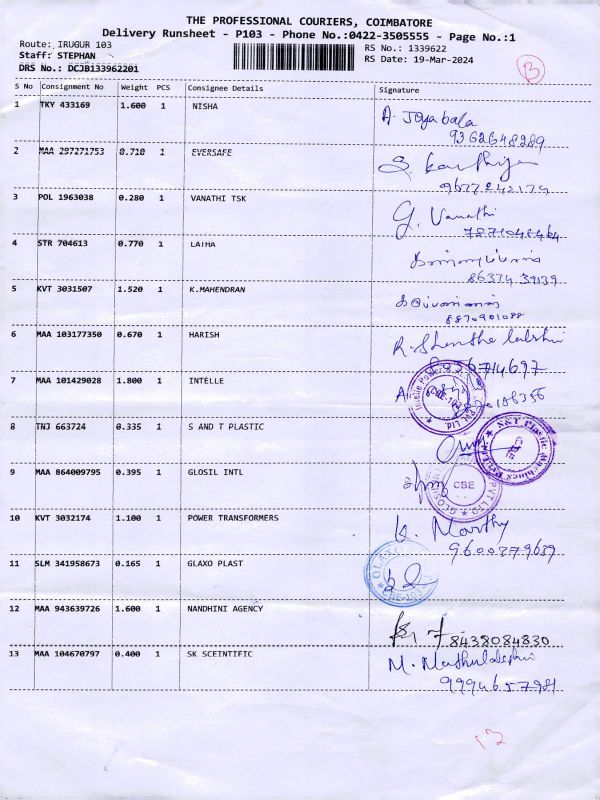 THE PROFESSIONAL COURIERS, COIMBATORE
Delivery Runsheet - P103 - Phone No.:0422-3505555 - Page No.:1
Route: IRUGUR 103
RS No.: 1339622
Staff: STEPHAN
RS Date: 19-Mar-2024
DRS No.: DCJB133962201
B
S No Consignment No Weight PCS Consignee Details Signature
1 TKY 433169 1.600 1 NISHA
A. Jayabala
9362648289
2 MAA 297271753 0.710 1 EVERSAFE
S. Karthiga
3 POL 1963038 0.280 1 VANATHI TSK
G. Vanathi
4 STR 704613 0.770 1 LATHA
86374 39139
5 KVT 3031507 1.520 1 K.MAHENDRAN
6 MAA 103177350 0.670 1 HARISH
7 MAA 101429028 1.800 1 INTELLE
8 TNJ 663724 0.335 1 S AND T PLASTIC
9 MAA 864009795 0.395 1 GLOSIL INTL
CBE
10 KVT 3032174 1.100 1 POWER TRANSFORMERS
K. Marthy
9600379639
11 SLM 341958673 0.165 1 GLAXO PLAST
12 MAA 943639726 1.600 1 NANDHINI AGENCY
8438084830
13 MAA 104670797 0.400 1 SK SCEINTIFIC
9994657981